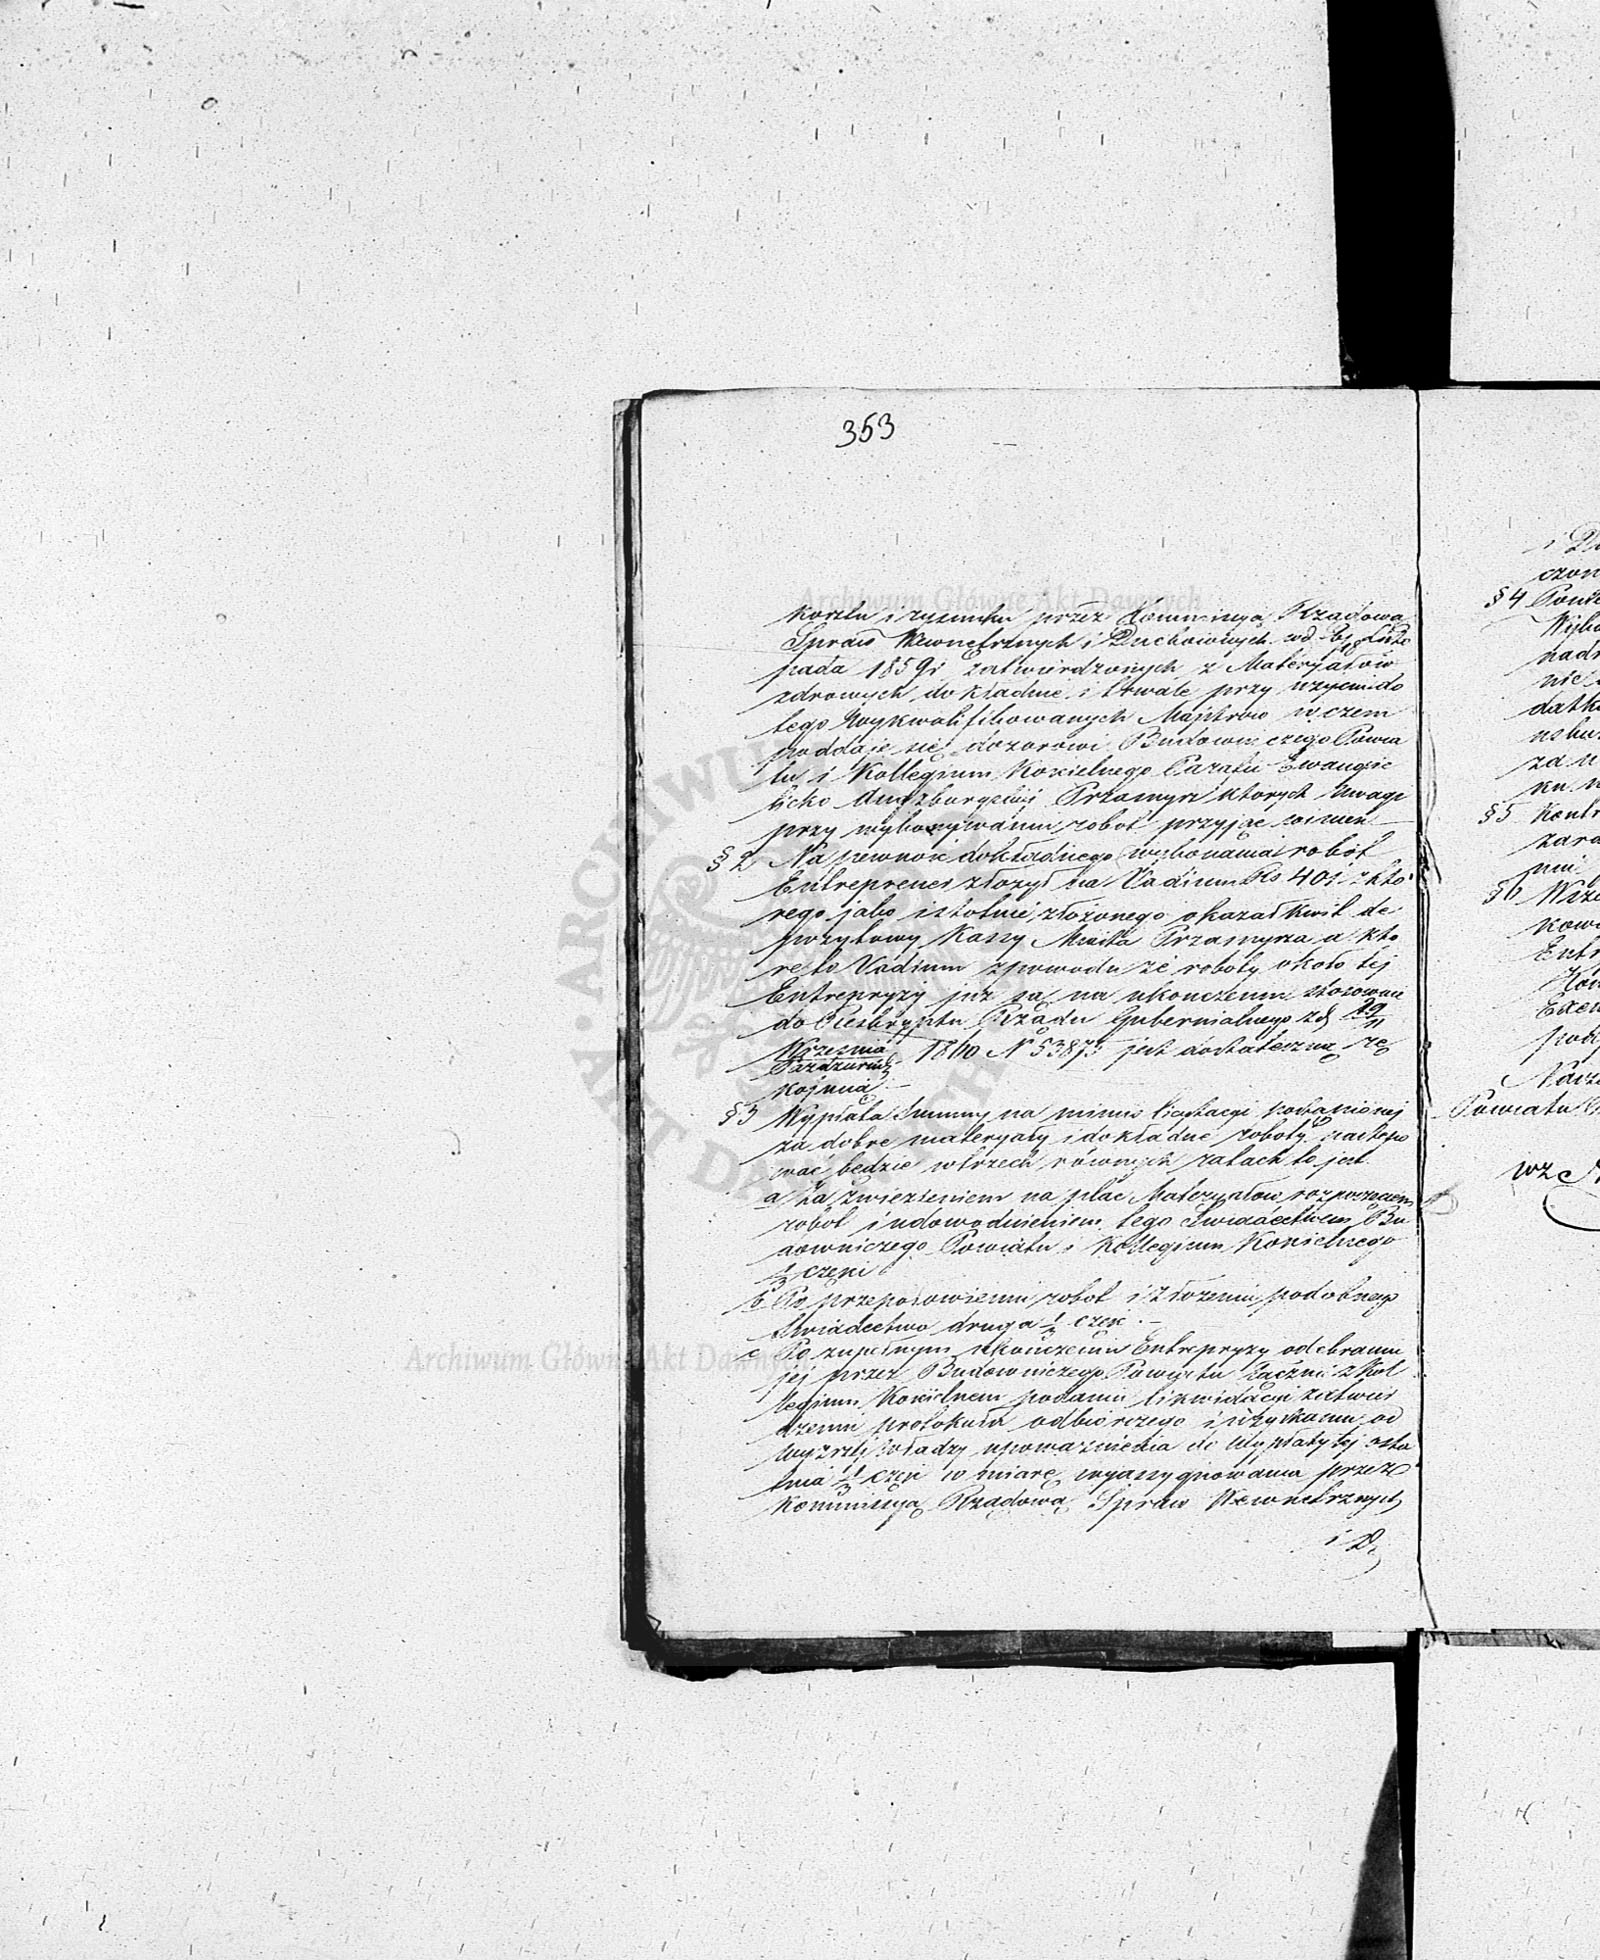 353
kosztu i rysunku przez Kommissyą Rządową
Spraw Wewnetrznych i Duchownych Listo
pada 1859 r zatwierdzonych z Materyałów
zdrowych dokładnie i trwale przy użyciu do
tego wykwalifikowanych Majstrów w czem
poddaje się dozorowi Budowniczego Powia
tu i Kollegium Koscielnego Parafii Ewangie
licko Augszburgskiej Przasnysz których Uwagi
przy wykonywaniu robot przyjąć winien
§ 2 Na pewność dokładnego wykonania robót
Entreprener złożył na Vadium Rs 40 z któ
rego jako istotnie złożonego okazał kwit de
pozytowy Kassy Miasta Przasnysza a któ
re to Vadium z powodu że roboty około tej
Entrepryzy już są na ukonczeniu stosownie
do Reskryptu Rządu Gubernialnego z d 29/11
Września/Pazdziernika 1860 N 53875 jest dostateczną rę
kojmią
§ 3 Wypłata Summy na minus licytacyi postąpionej
za dobre materyały i dokładne roboty nastepo
wać będzie w trzech równych ratach to jest
a Za zwiezieniem na plac Materyałów rozpoczęciem
robot i udowodnieniem tego Swiadectwem Bu
downiczego Powiatu i Kollegium Koscielnego
1/3 części
b Po przepołowieniu robot i złożeniu podobnego
Swiadectwa druga 1/3 częsc
c Po zupełnym ukończeniu Entrepryzy odebraniu
jej przez Budowniczego Powiatu łącznie z Kol
legium Koscielnem podaniu likwidacyi zatwier
dzeniu protokułu odbiorczego i uzyskaniu od
wyższej władzy upoważnienia do wypłaty tej osta
tnia 1/3 częsci w miarę wyassygnowania przez
Kommissyą Rządową Spraw Wewnetrznych
i D
czon
§ 4
nadr
nie
datk
za u
§ 5 Kontr
zara
§ 6
kowa
Entr
Powiatu
wz
Archiwum Główne Akt Dawnych
Archiwum Główne Akt Dawnych